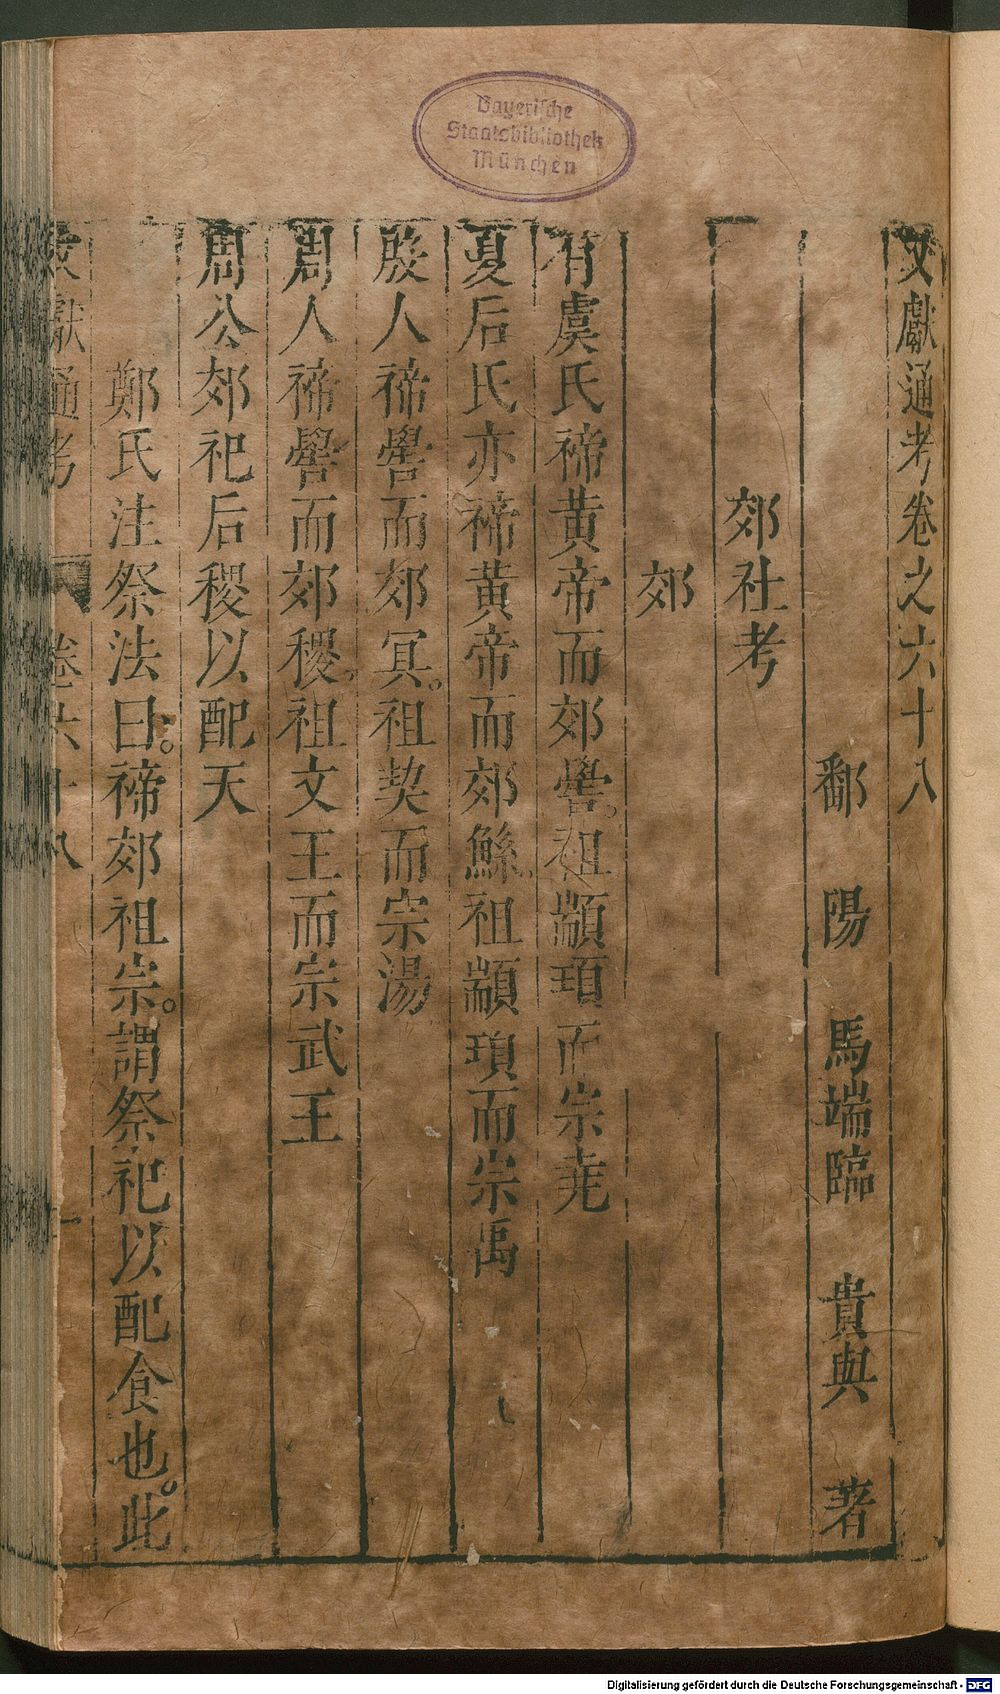 Bayerische
Staatsbibliothek
München
文獻通考卷之六十八
鄱陽馬端臨貴與著
郊社考
郊
有虞氏禘黃帝而郊嚳。祖顓頊而宗堯
夏后氏亦禘黃帝而郊鯀。祖顓頊而宗禹
殷人禘嚳而郊冥。祖契而宗湯
周人禘嚳而郊稷。祖文王而宗武王
周公郊祀后稷以配天
鄭氏注祭法曰。禘郊祖宗。謂祭祀以配食也。此
文獻通考 卷六十八 一
Digitalisierung gefördert durch die Deutsche Forschungsgemeinschaft - DFG